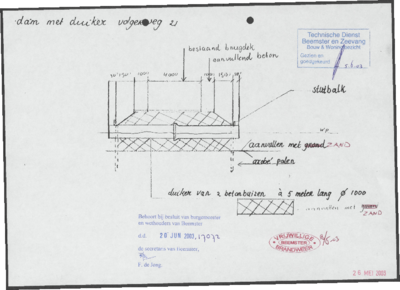 dam met duiker volgerweg 21
Technische Dienst
Beemster en Zeevang
Bouw & Woningtoezicht
Gezien en
goedgekeurd
bestaand brugdek
aanvullend beton
stutbalk
wp
aanvullen met grond ZAND
azobé palen
duiker van 2 betonbuizen à 5 meter lang Ø 1000
aanvullen met ZAND
Behoort bij besluit van burgemeester
en wethouders van Beemster
d.d. 20 JUN 2003, 17072
de secretaris van Beemster,
F. de Jong
VRIJWILLIGE
BEEMSTER
BRANDWEER
26 MEI 2003